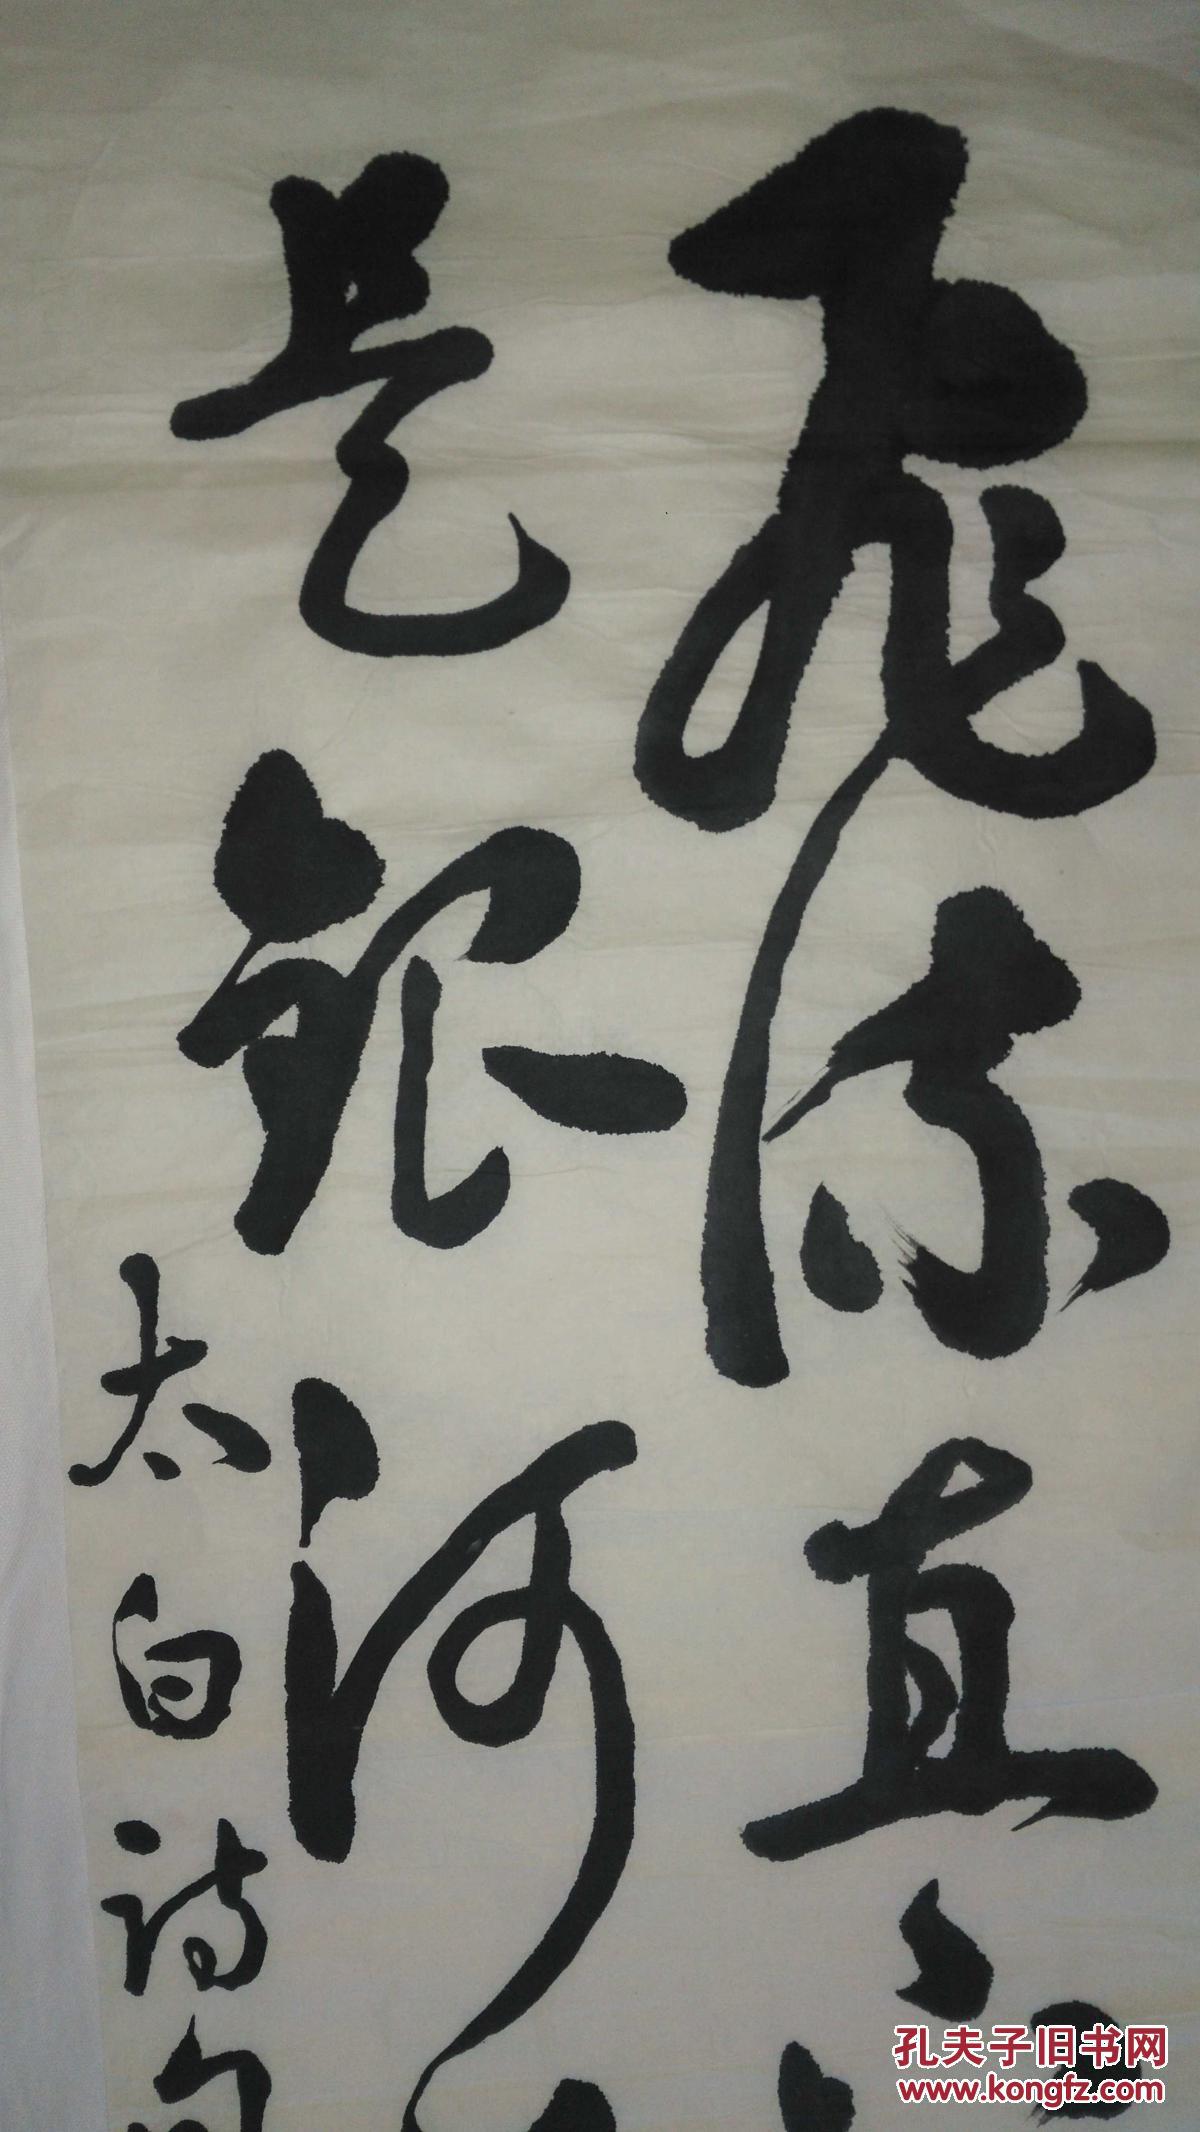 飛流直
是銀河
太白詩句
孔夫子旧书网
www.kongfz.com